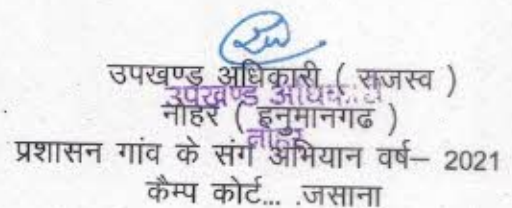 उपखण्ड अधिकारी ( राजस्व )
उपखण्ड अधिकारी
नोहर ( हनुमानगढ )
नोहर
प्रशासन गांव के संग अभियान वर्ष– 2021
कैम्प कोर्ट... .जसाना